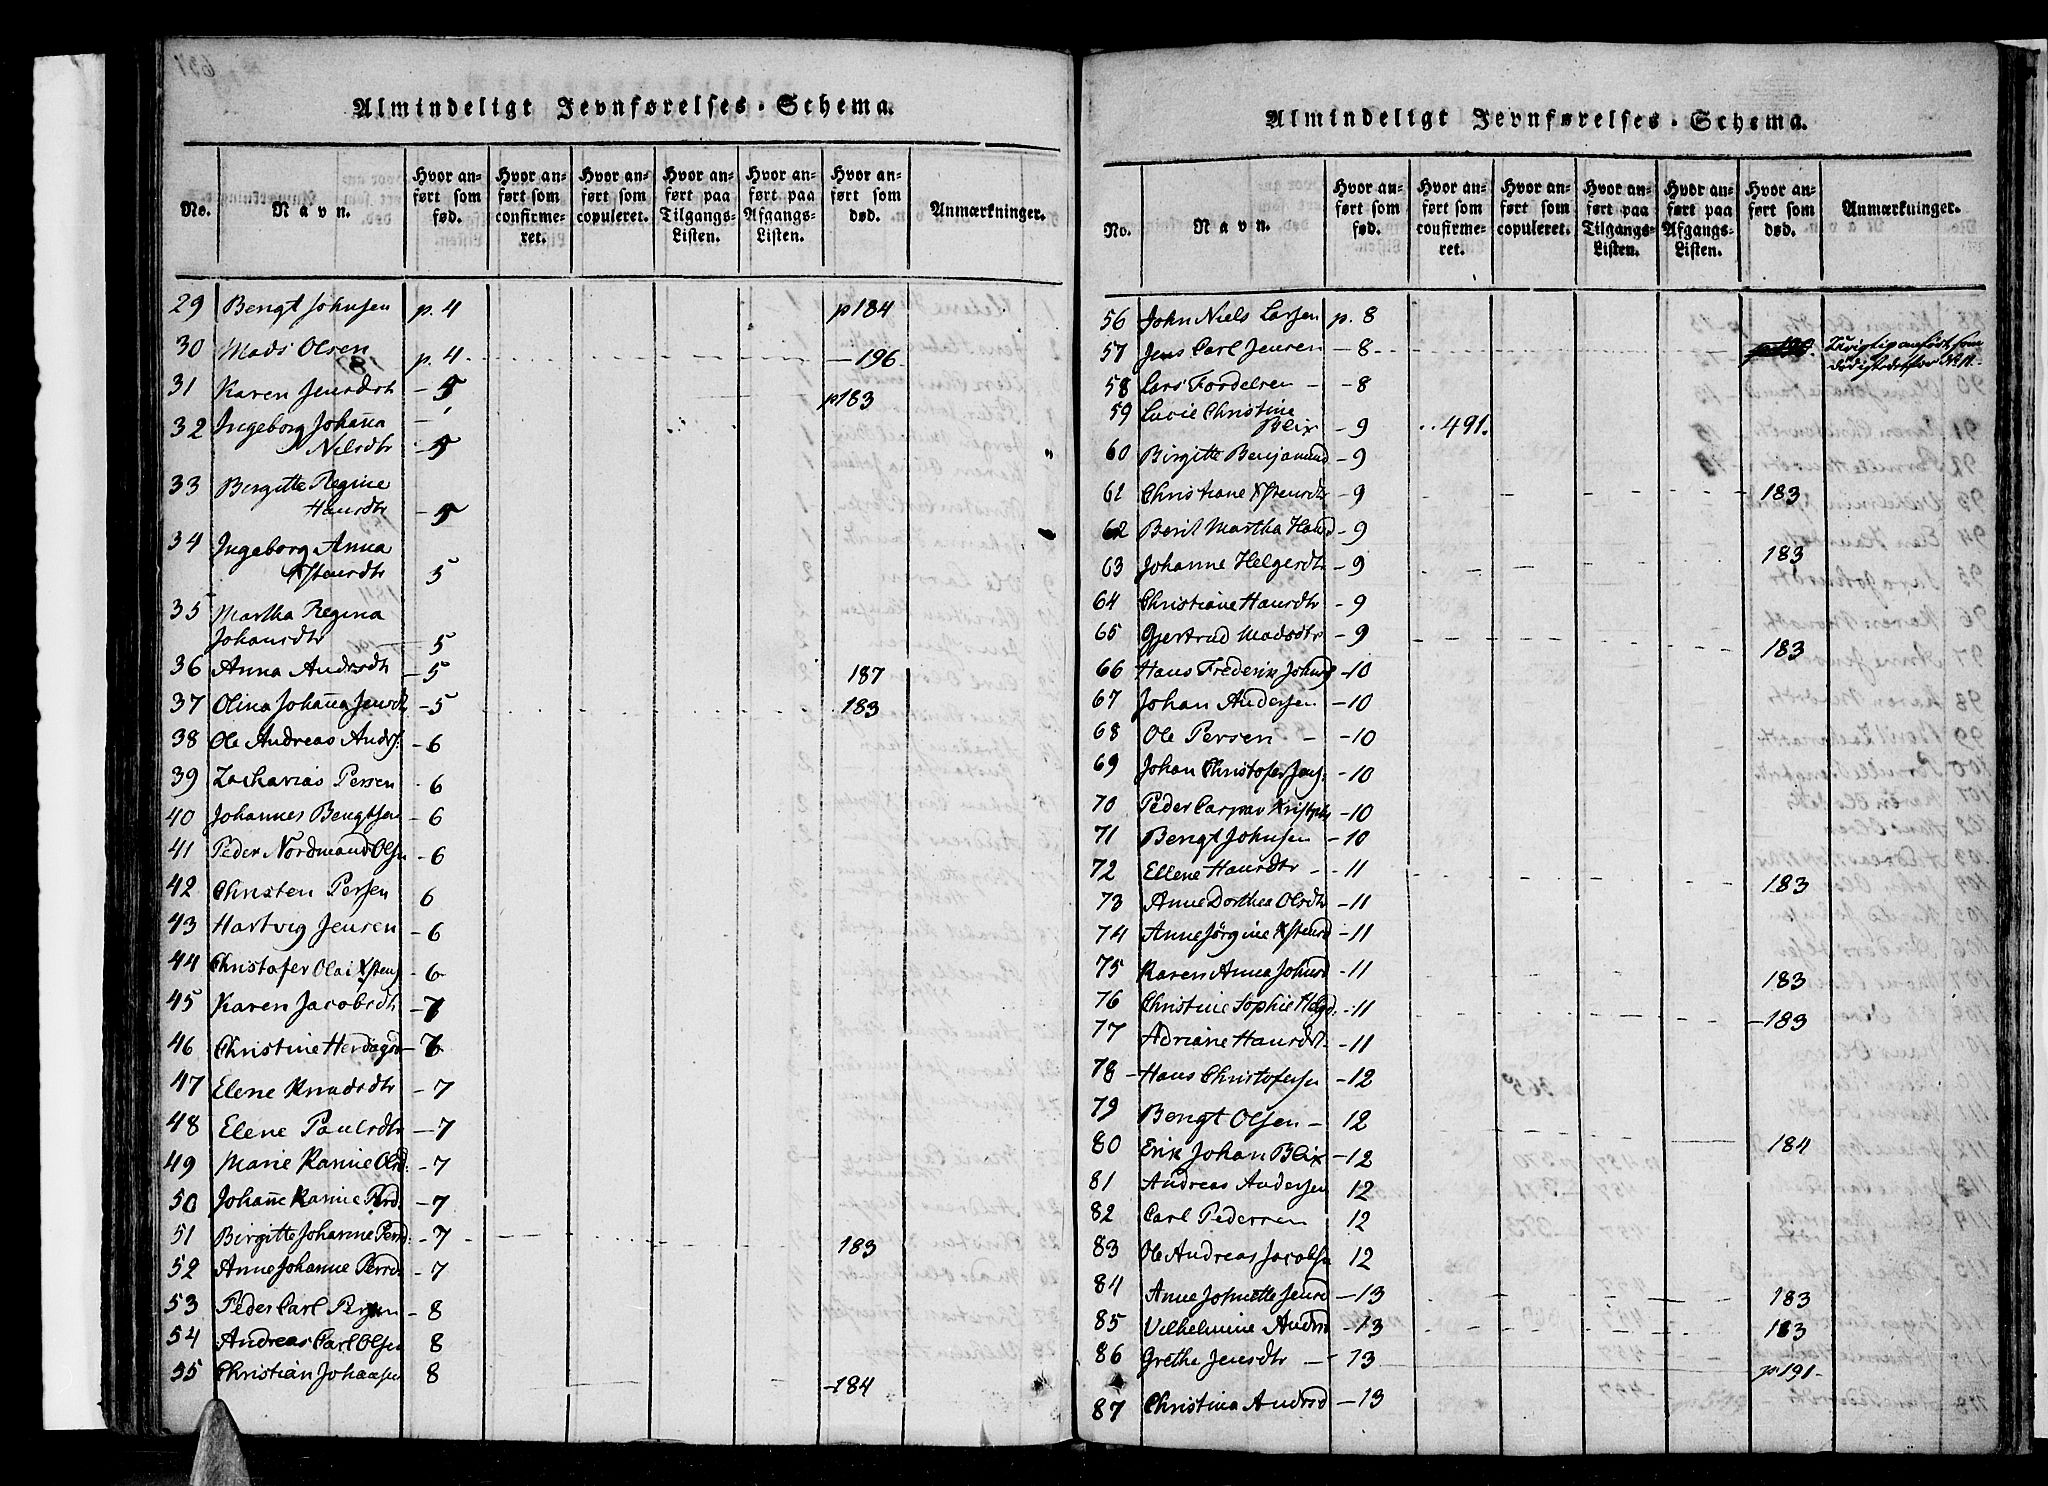 Almindeligt Jevnførelses-Schema.
No.
Navn.
Hvor an-
ført som
fød.
Hvor an-
ført som
confirme-
ret.
Hvor an-
ført som
copuleret.
Hvor an-
ført paa
Tilgangs-
Listen.
Hvor an-
ført paa
Afgangs-
Listen.
Hvor an-
ført som
død.
Anmærkninger.
29 Bengt Johnsen p. 4 p184
30 Mads Olsen p. 4. -196
31 Karen Jensdtr - 5 p183
32 Ingeborg Johaña
Nilsdtr - 5
33 Bergitte Regine
Hansdtr - 5
34 Ingeborg Anna
Xstensdtr 5
35 Martha Regina
Johansdtr - 5
36 Anna Andrsdtr - 5 187
37 Olina Johaña Jensdtr - 5 183
38 Ole Andreas Andrs. - 6
39 Zacharias Persen - 6
40 Johannes Bengtsen - 6
41 Peder Nordmand Olsen - 6
42 Christen Persen 6
43 Hartvig Jensen - 6
44 Christofer Olai Xstens - 6
45 Karen Jacobsdtr - 7
46 Christine Herdagsd - 7
47 Elene Knudsdtr - 7
48 Elene Paulsdtr - 7
49 Marie Karine Olsd. - 7
50 Johañe Karine Persd. - 7
51 Birgitte Johanne Persd. - 7 183
52 Anne Johanne Persd - 7
53 Peder Carl Persen - 8
54 Andreas Carl Olsen 8
55 Christian Johansen 8 -184
Almindeligt Jevnførelses-Schema.
No.
Navn.
Hvor an-
ført som
fød.
Hvor an-
ført som
confirme-
ret.
Hvor an-
ført som
copuleret.
Hvor an-
ført paa
Tilgangs-
Listen.
Hvor an-
ført paa
Afgangs-
Listen.
Hvor an-
ført som
død.
Anmærkninger.
56 John Niels Larsen p. 8
57 Jens Carl Jensen - 8 anført som
58 Lars Fordelsen - 8
59 Lucie Christine
Blix - 9 491.
60 Birgitte Benjamind - 9
61 Christiane Xstensdtr - 9 183
62 Beril Martha Hansd - 9
63 Johanne Helgesdtr - 9 183
64 Christiane Hansdtr - 9
65 Gjertrud Madsdtr - 9 183
66 Hans Frederik Johns - 10
67 Johan Andersen - 10
68 Ole Persen - 10
69 Johan Christofer Jens. - 10
70 Peder Caspar Kristofs - 10
71 Bengt Johnsen - 10
72 Ellene Hansdtr - 11 183
73 Anne Dorthea Olsdtr - 11
74 Anne Jørgine Xstensd - 11
75 Karen Anna Johnsd - 11 183
76 Christine Sophie Helgd. - 11 -183
77 Adriane Hansdt. - 11
78 Hans Christofersen - 12
79 Bengt Olsen - 12
80 Erik Johan Blix - 12 184
81 Andreas Andersen 12
82 Carl Pedersen 12
83 Ole Andreas Jacobsen 12
84 Anne Johnette Jensd - 13 183
85 Vilhelmine Andrsd - 13 183
86 Grethe Jensdtr - 13 p191
87 Christina Andrsd - 13